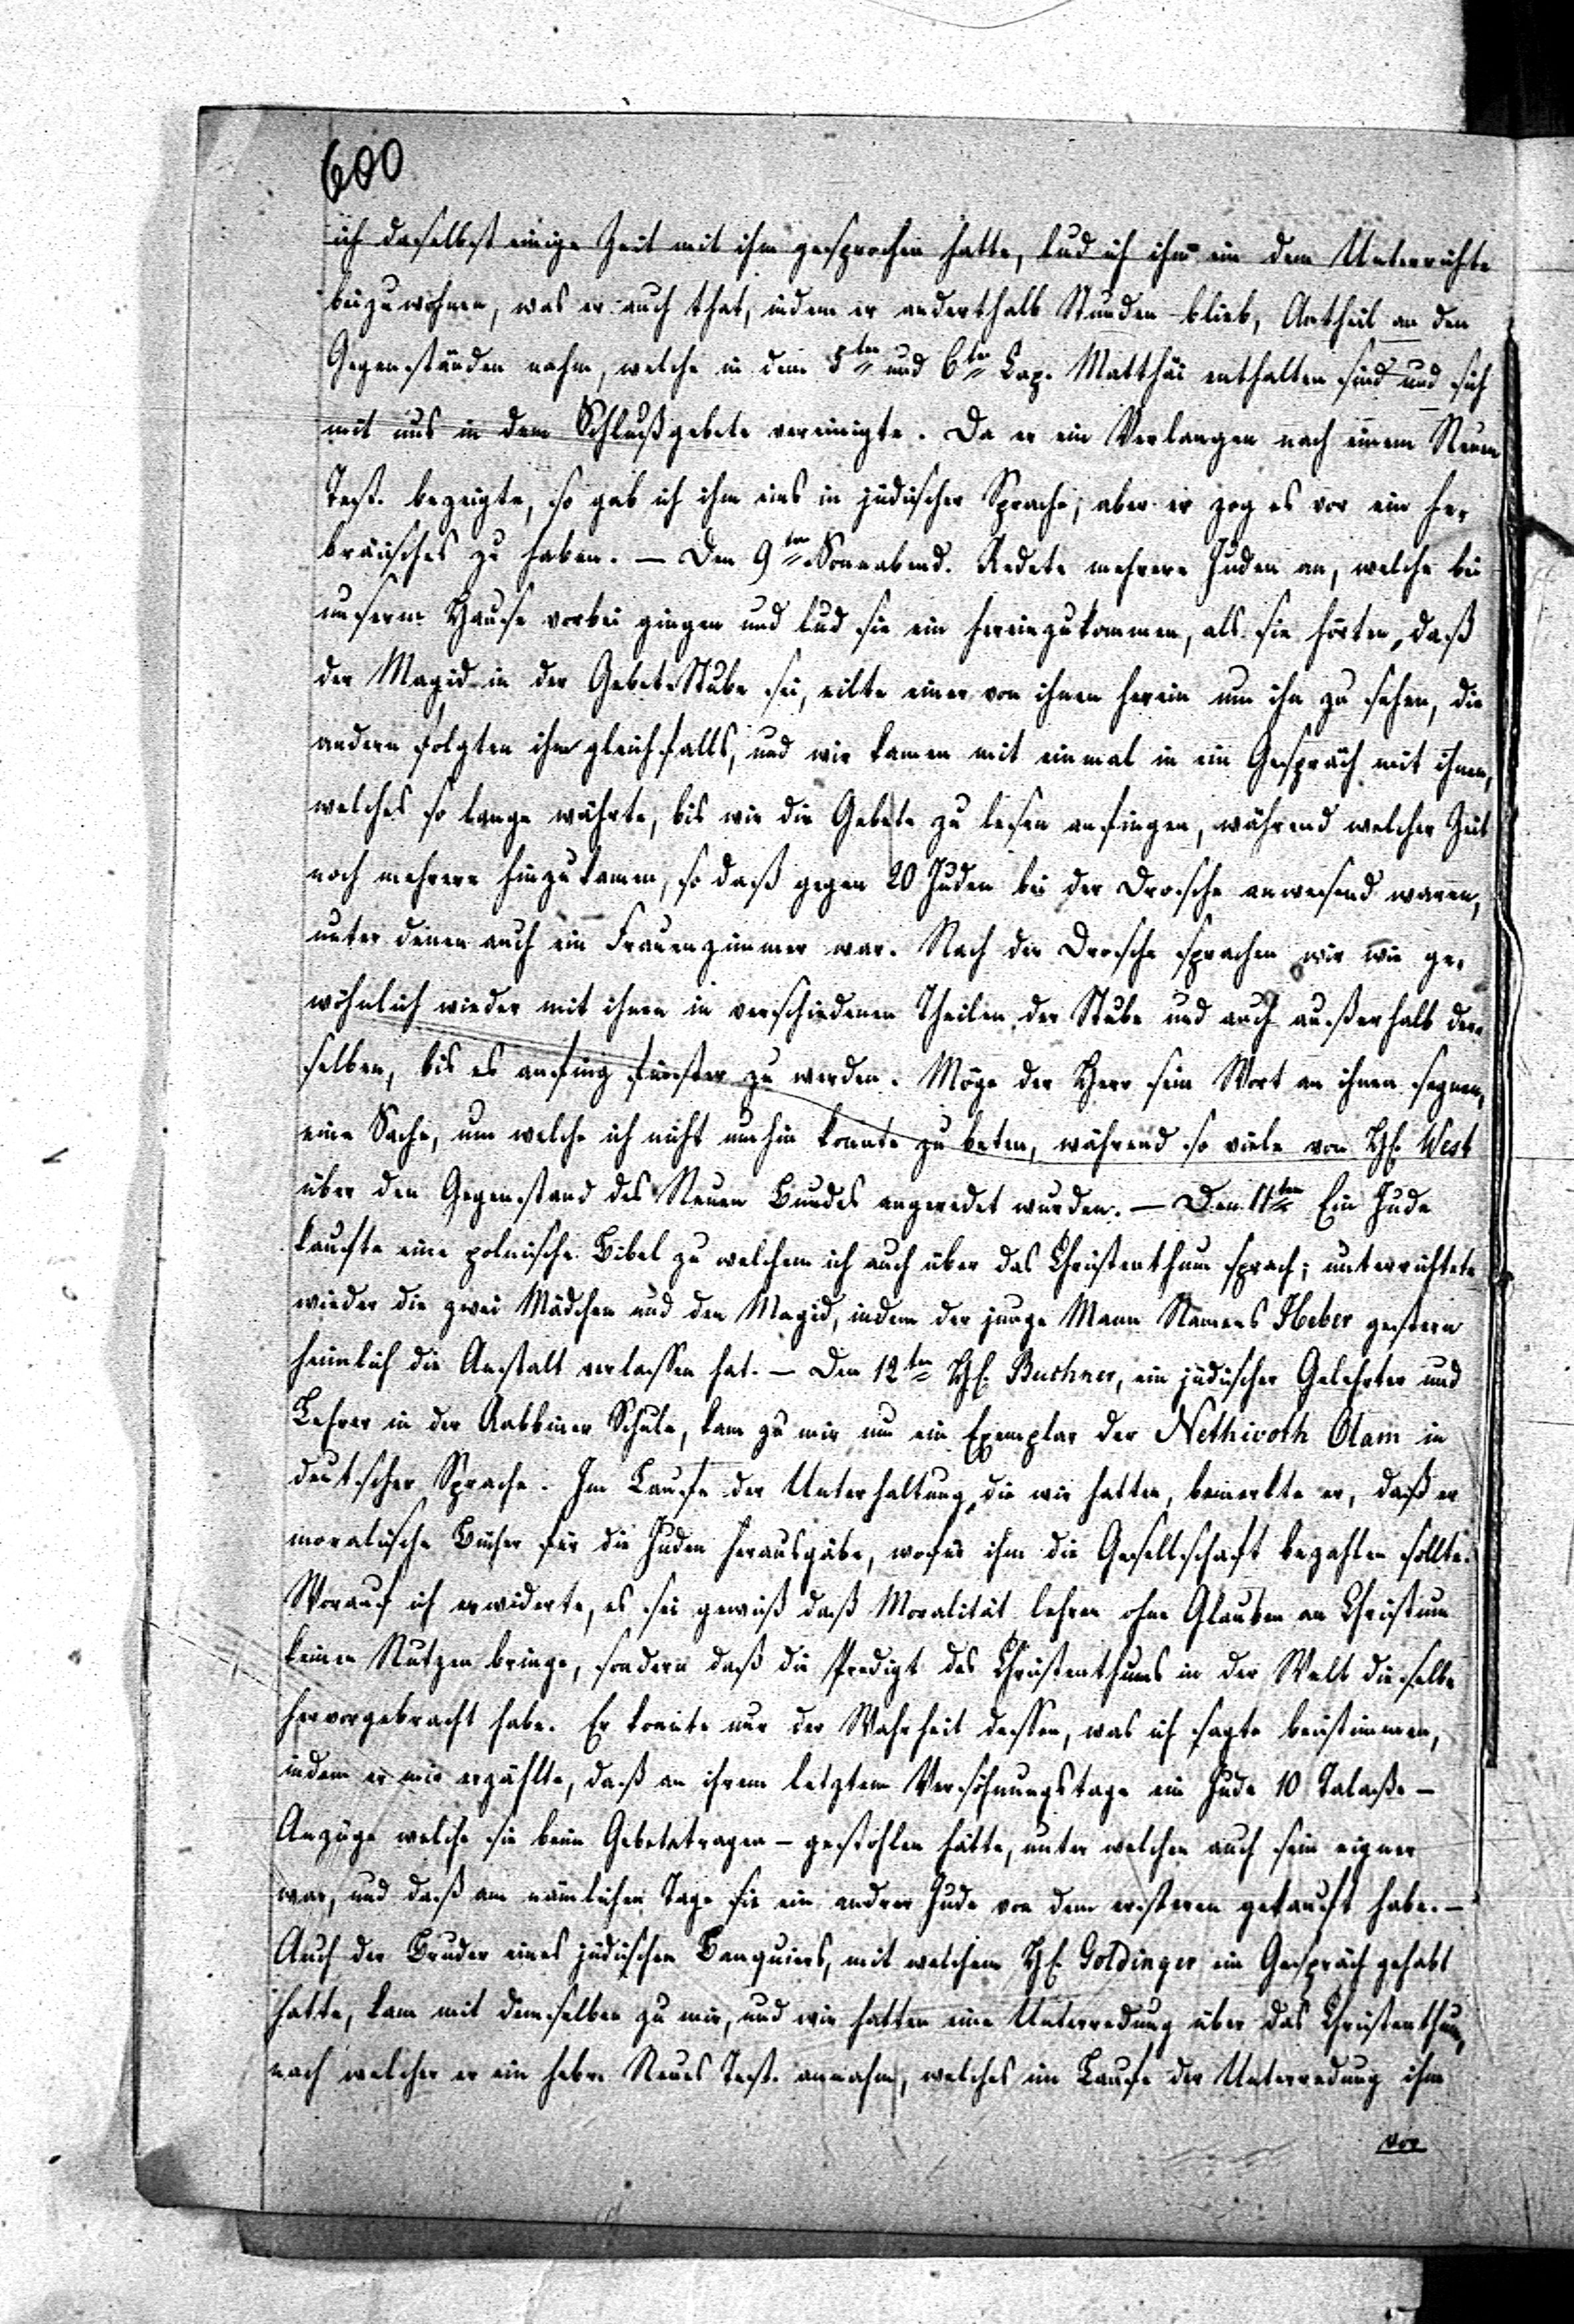 600
ich daselbst einige Zeit mit ihm gesprochen hatte, lud ich ihn ein dem Unterrichte
beizuwohnen, was er auch that, indem er anderthalb Stunden blieb, Antheil an den
Gegenständen nahm, welche in dem 5ten und 6ten Cap. Matthäi enthalten sind und sich
mit uns in dem Schlußgebete vereinigte. Da er ein Verlangen nach einem Neuen
Test. bezeigte, so gab ich ihm eins in jüdischer Sprache; aber er zog es vor ein he-
bräisches zu haben. — Den 9ten Sonnabend. Redete mehrere Juden an, welche bei
unserm Hause vorbei gingen und lud sie ein hereinzukommen, als sie hörten, daß
der Magid in der Gebet-Stube sei, eilte einer von ihnen herein um ihn zu sehen, die
andern folgten ihm gleichfalls, und wir kamen mit einmal in ein Gespräch mit ihnen,
welches so lange währte, bis wir die Gebete zu lesen anfingen, während welcher Zeit
noch mehrere hinzukamen, so daß gegen 20 Juden bei der Drosche anwesend waren,
unter denen auch ein Frauenzimmer war. Nach der Drosche sprachen wir wie ge-
wöhnlich wieder mit ihnen in verschiedenen Theilen der Stube und auch außerhalb der-
selben, bis es anfing finster zu werden. Möge der Herr sein Wort an ihnen segnen,
eine Sache, um welche ich nicht umhin konnte zu beten, während so viele von H. West
über den Gegenstand des Neuen Bundes angeredet wurden. — Den 11ten Ein Jude
kaufte eine polnische Bibel zu welchem ich auch über das Christenthum sprach; unterrichtete
wieder die zwei Mädchen und den Magid, indem der junge Mann Namens Heber gestern
heimlich die Anstalt verlassen hat. — Den 12ten H. Buchner, ein jüdischer Gelehrter und
Lehrer in der Rabbiner Schule, kam zu mir um ein Exemplar der Nethivoth Olam in
deutscher Sprache. Im Laufe der Unterhaltung, die wir hatten, bemerkte er, daß er
moralische Bücher für die Juden herausgäbe, wofür ihm die Gesellschaft bezahlen sollte.
Worauf ich erwiderte, es sei gewiß daß Moralität lehren ohne Glauben an Christum
keinen Nutzen bringe, sondern daß die Predigt des Christenthums in der Welt dieselbe
hervorgebracht habe. Er konnte nur der Wahrheit dessen, was ich sagte beistimmen,
indem er mir erzählte, daß an ihrem letztem Versöhnungstage ein Jude 10 Talasse —
Anzüge welche sie beim Gebete tragen — gestohlen hätte, unter welchen auch sein eigner
war, und daß am nämlichen Tage sie ein andrer Jude von dem ersteren gekauft habe. —
Auch der Bruder eines jüdischen Banquiers, mit welchem H. Goldinger ein Gespräch gehabt
hatte, kam mit demselben zu mir, und wir hatten eine Unterredung über das Christenthum,
nach welcher er ein hebr. Neues Test. annahm, welches im Laufe der Unterredung ihm
vor